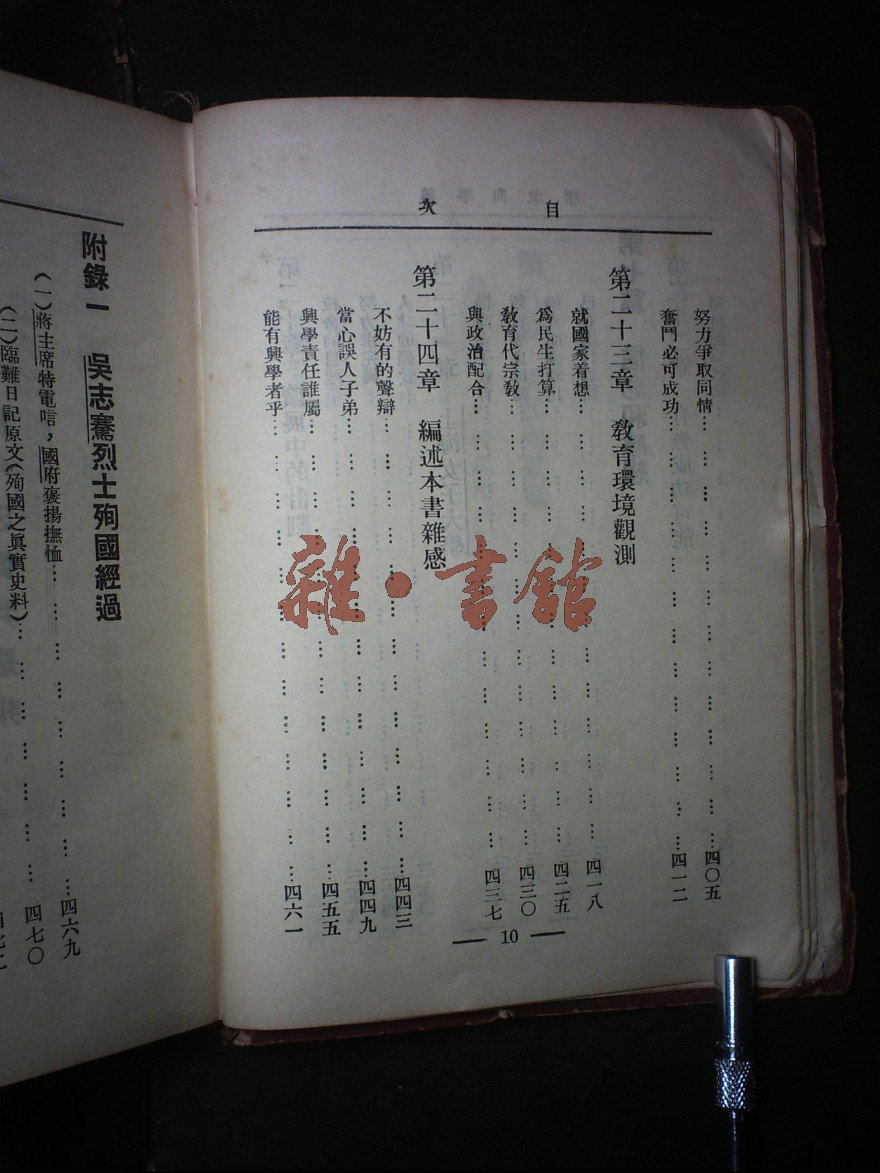 目次
努力爭取同情……四〇五
奮鬥必可成功……四一二
第二十三章 教育環境觀測
就國家着想……四一八
爲民生打算……四二五
教育代宗教……四三〇
與政治配合……四三七
第二十四章 編述本書雜感
不妨有的聲辯……四四三
當心誤人子弟……四四九
興學責任誰屬……四五五
能有興學者乎……四六一
— 10 —
附錄一 吳志騫烈士殉國經過
(一)蔣主席特電唁,國府褒揚撫恤……四六九
(二)臨難日記原文(殉國之眞實史料)……四七〇
雜·書館